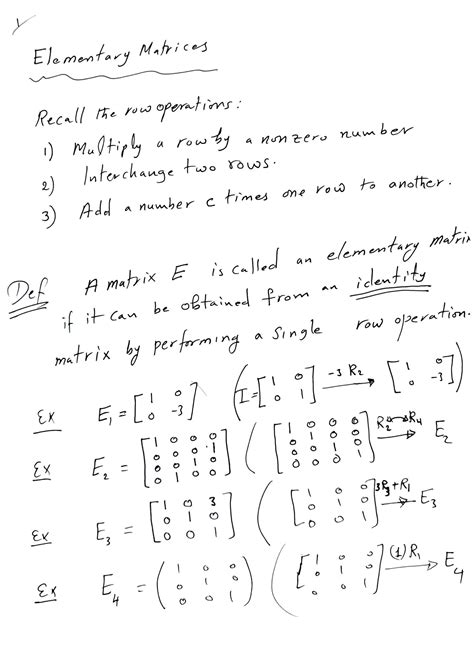 Elementary Matrices
Recall the row operations:
1) Multiply a row by a nonzero number
2) Interchange two rows.
3) Add a number c times one row to another.
Def A matrix E is called an elementary matrix
if it can be obtained from an identity
matrix by performing a single row operation.
Ex E₁ = [1 0; 0 -3] (I = [1 0; 0 1] -3 R₂ → [1 0; 0 -3])
Ex E₂ = [1 0 0 0; 0 0 0 1; 0 0 1 0; 0 1 0 0] ([1 0 0 0; 0 1 0 0; 0 0 1 0; 0 0 0 1] R₂↔R₄ → E₂
Ex E₃ = [1 0 3; 0 1 0; 0 0 1] ([1 0 0; 0 1 0; 0 0 1] 3R₃+R₁ → E₃
Ex E₄ = (1 0 0; 0 1 0; 0 0 1) ([1 0 0; 0 1 0; 0 0 1] (1)R₁ → E₄